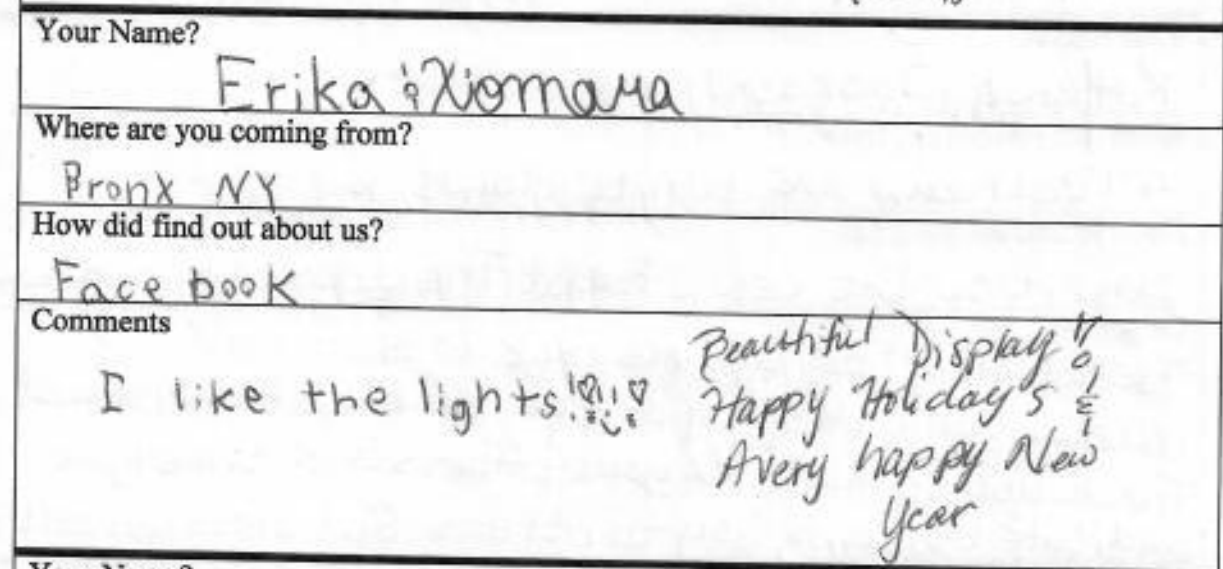 Your Name?
Erika & Xiomara
Where are you coming from?
Bronx NY
How did find out about us?
Face book
Comments
I like the lights!!
Beautiful Display!!
Happy Holiday's &
A very happy New
Year
Your Name?